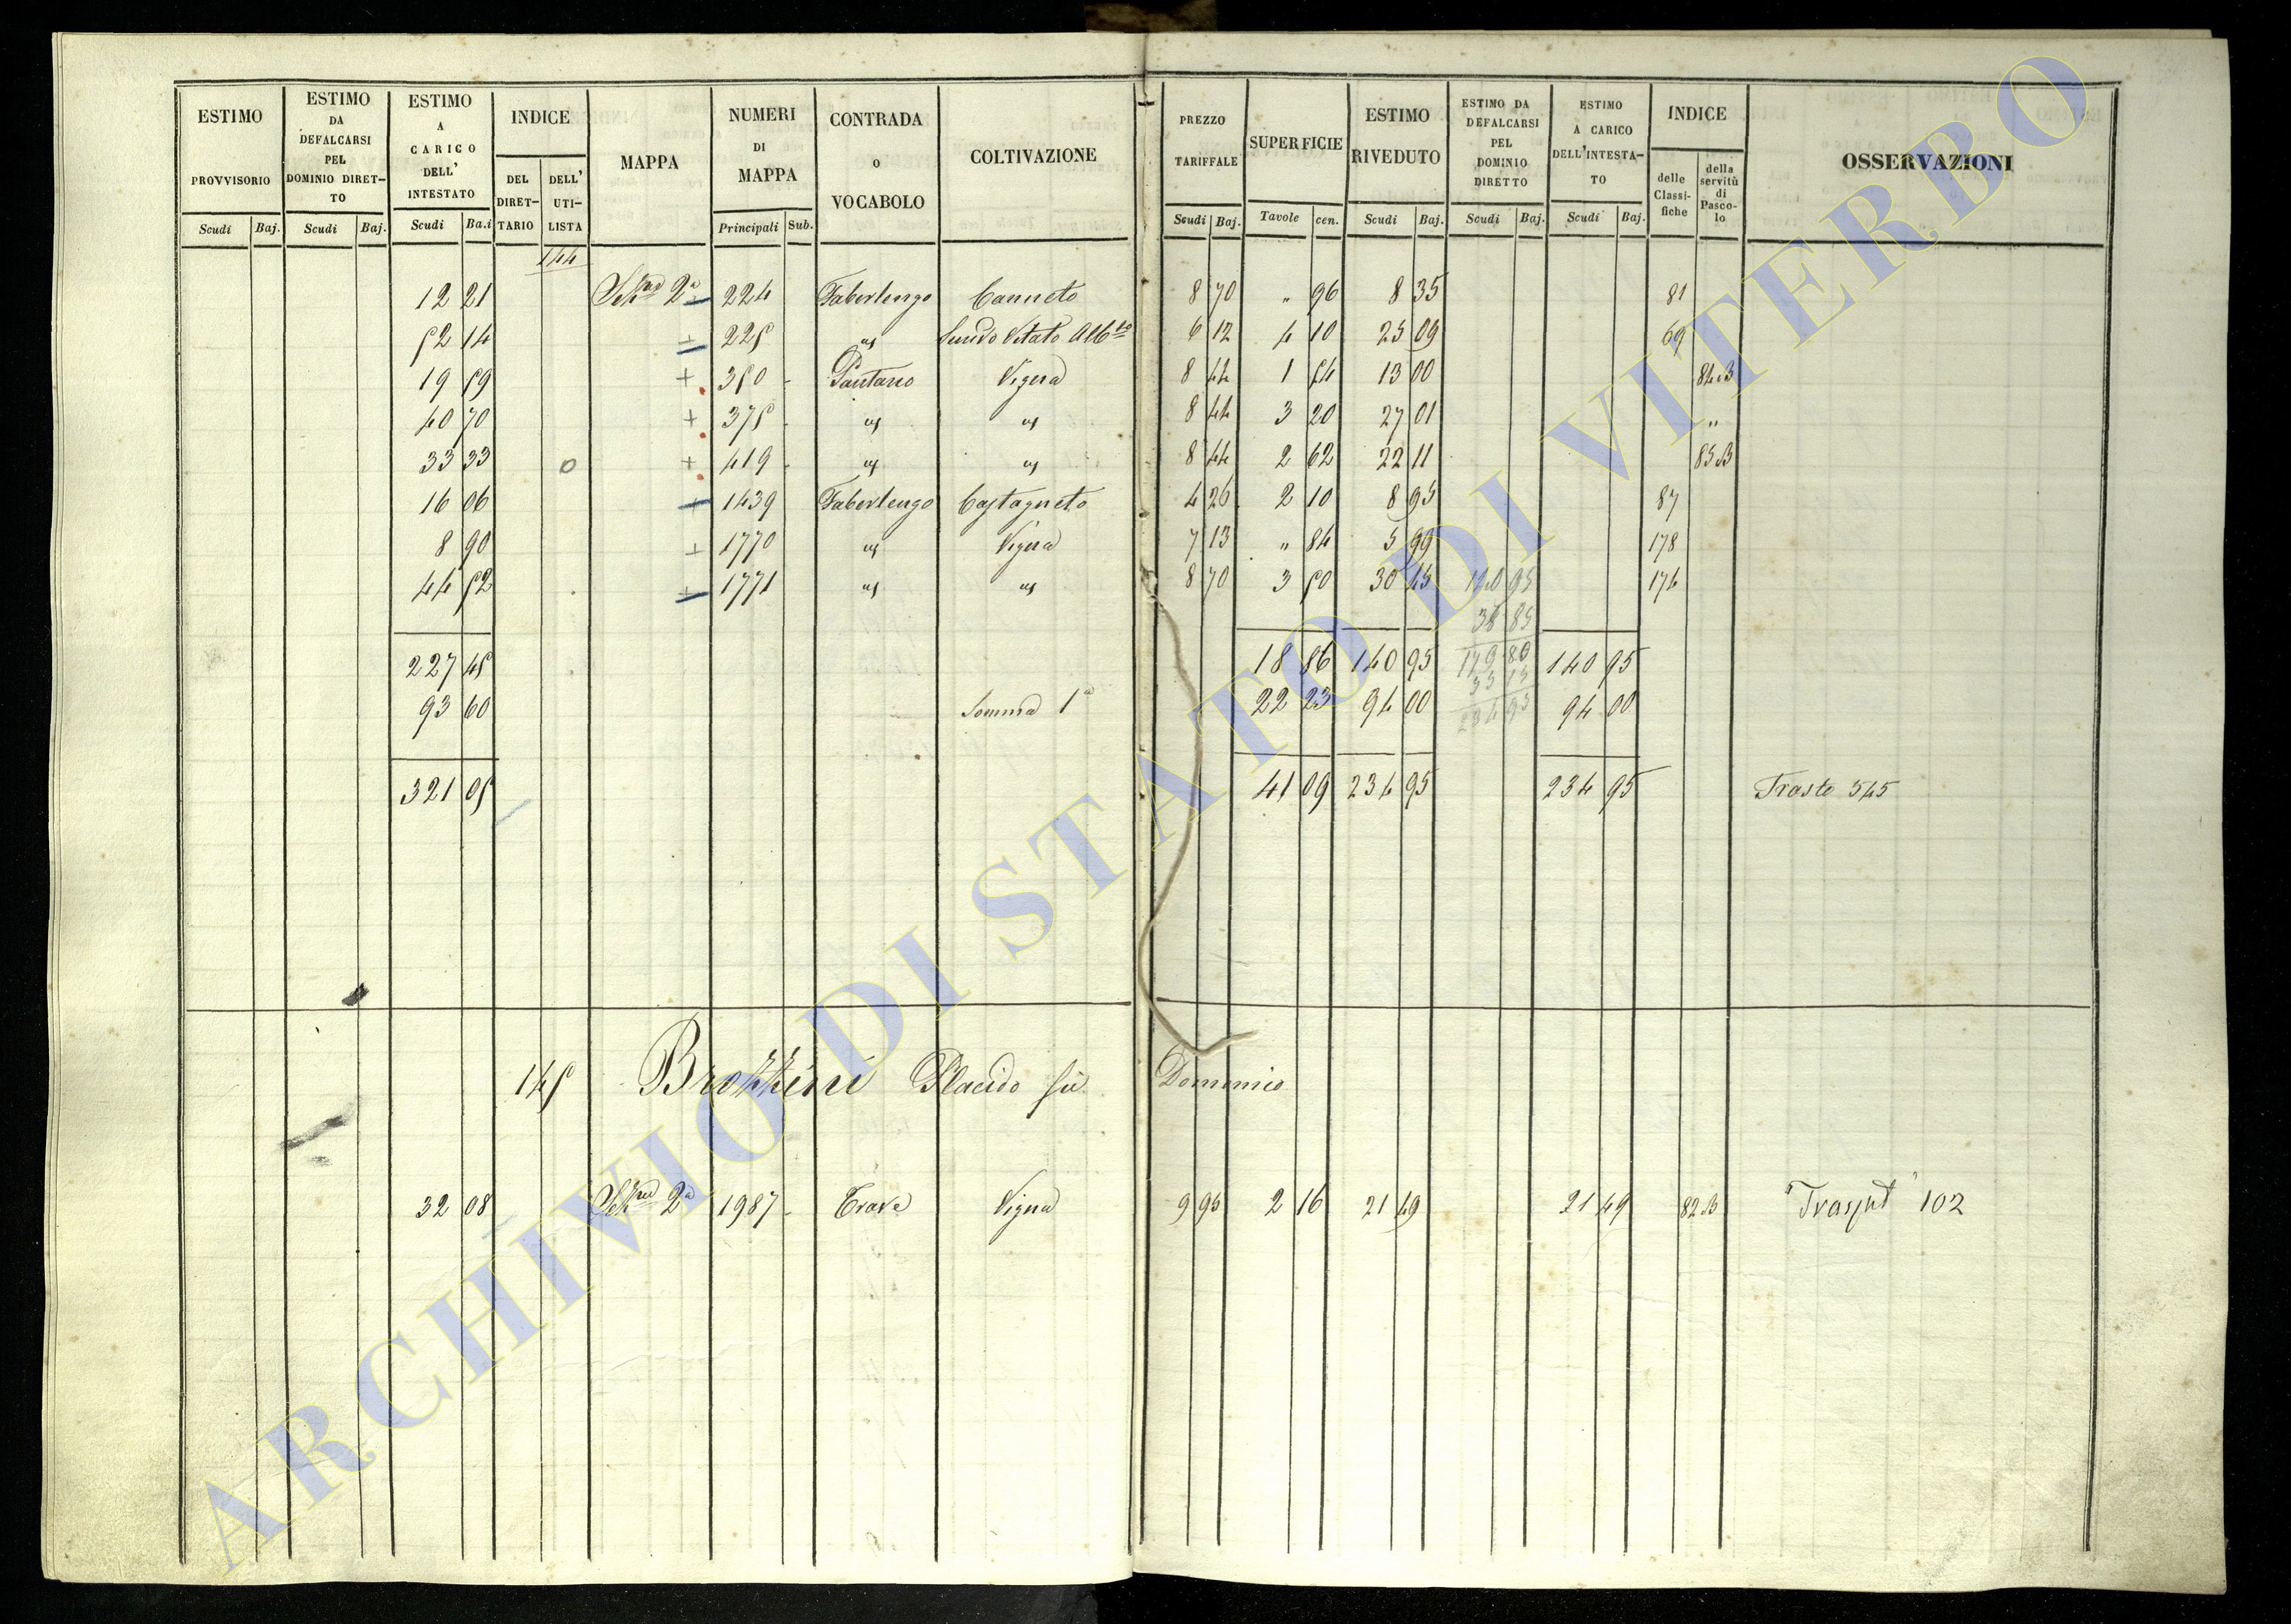 ESTIMO PROVVISORIO | ESTIMO DA DEFALCARSI PEL DOMINIO DIRET-TO | ESTIMO A CARICO DELL' INTESTATO | INDICE | MAPPA | NUMERI DI MAPPA | CONTRADA O VOCABOLO | COLTIVAZIONE | PREZZO TARIFFALE | SUPERFICIE | ESTIMO RIVEDUTO | ESTIMO DA DEFALCARSI PEL DOMINIO DIRETTO | ESTIMO A CARICO DELL'INTESTA-TO | INDICE | OSSERVAZIONI
DEL DIRET-TARIO | DELL' UTI-LISTA | delle Classi-fiche | della servitù di Pasco-lo
Scudi | Baj. | Scudi | Baj. | Scudi | Ba.i | Principali | Sub. | Scudi | Baj. | Tavole | cen. | Scudi | Baj. | Scudi | Baj. | Scudi | Baj.
144
12 21 | 2ª | 224 | Taberlengo | Canneto | 8 70 | " 96 | 8 35 | 81
52 14 | + | 225 | us | Vitato Alb.to | 6 12 | 4 10 | 25 09 | 69
19 59 | + | 350 | Pantano | Vigna | 8 44 | 1 54 | 13 00 | 84 B
40 70 | + | 375 | us | us | 8 44 | 3 20 | 27 01 | "
33 33 | o | + | 419 | us | us | 8 44 | 2 62 | 22 11 | 85 B
16 06 | + | 1439 | Taberlengo | Castagneto | 4 26 | 2 10 | 8 95 | 87
8 90 | + | 1770 | us | Vigna | 7 13 | " 84 | 5 99 | 178
44 52 | + | 1771 | us | us | 8 70 | 3 50 | 30 45 | 140 95 | 174
38 85
227 45 | 18 86 | 140 95 | 179 80 | 140 95
93 60 | Somma 1ª | 22 23 | 94 00 | 234 95 | 94 00
321 05 | 41 09 | 234 95 | 234 95 | Trasto 545
145 Brozzini Placido fù Domenico
32 08 | 2ª | 1987 | Trave | Vigna | 9 95 | 2 16 | 21 49 | 21 49 | 82 B | 102
ARCHIVIO DI STATO DI VITERBO